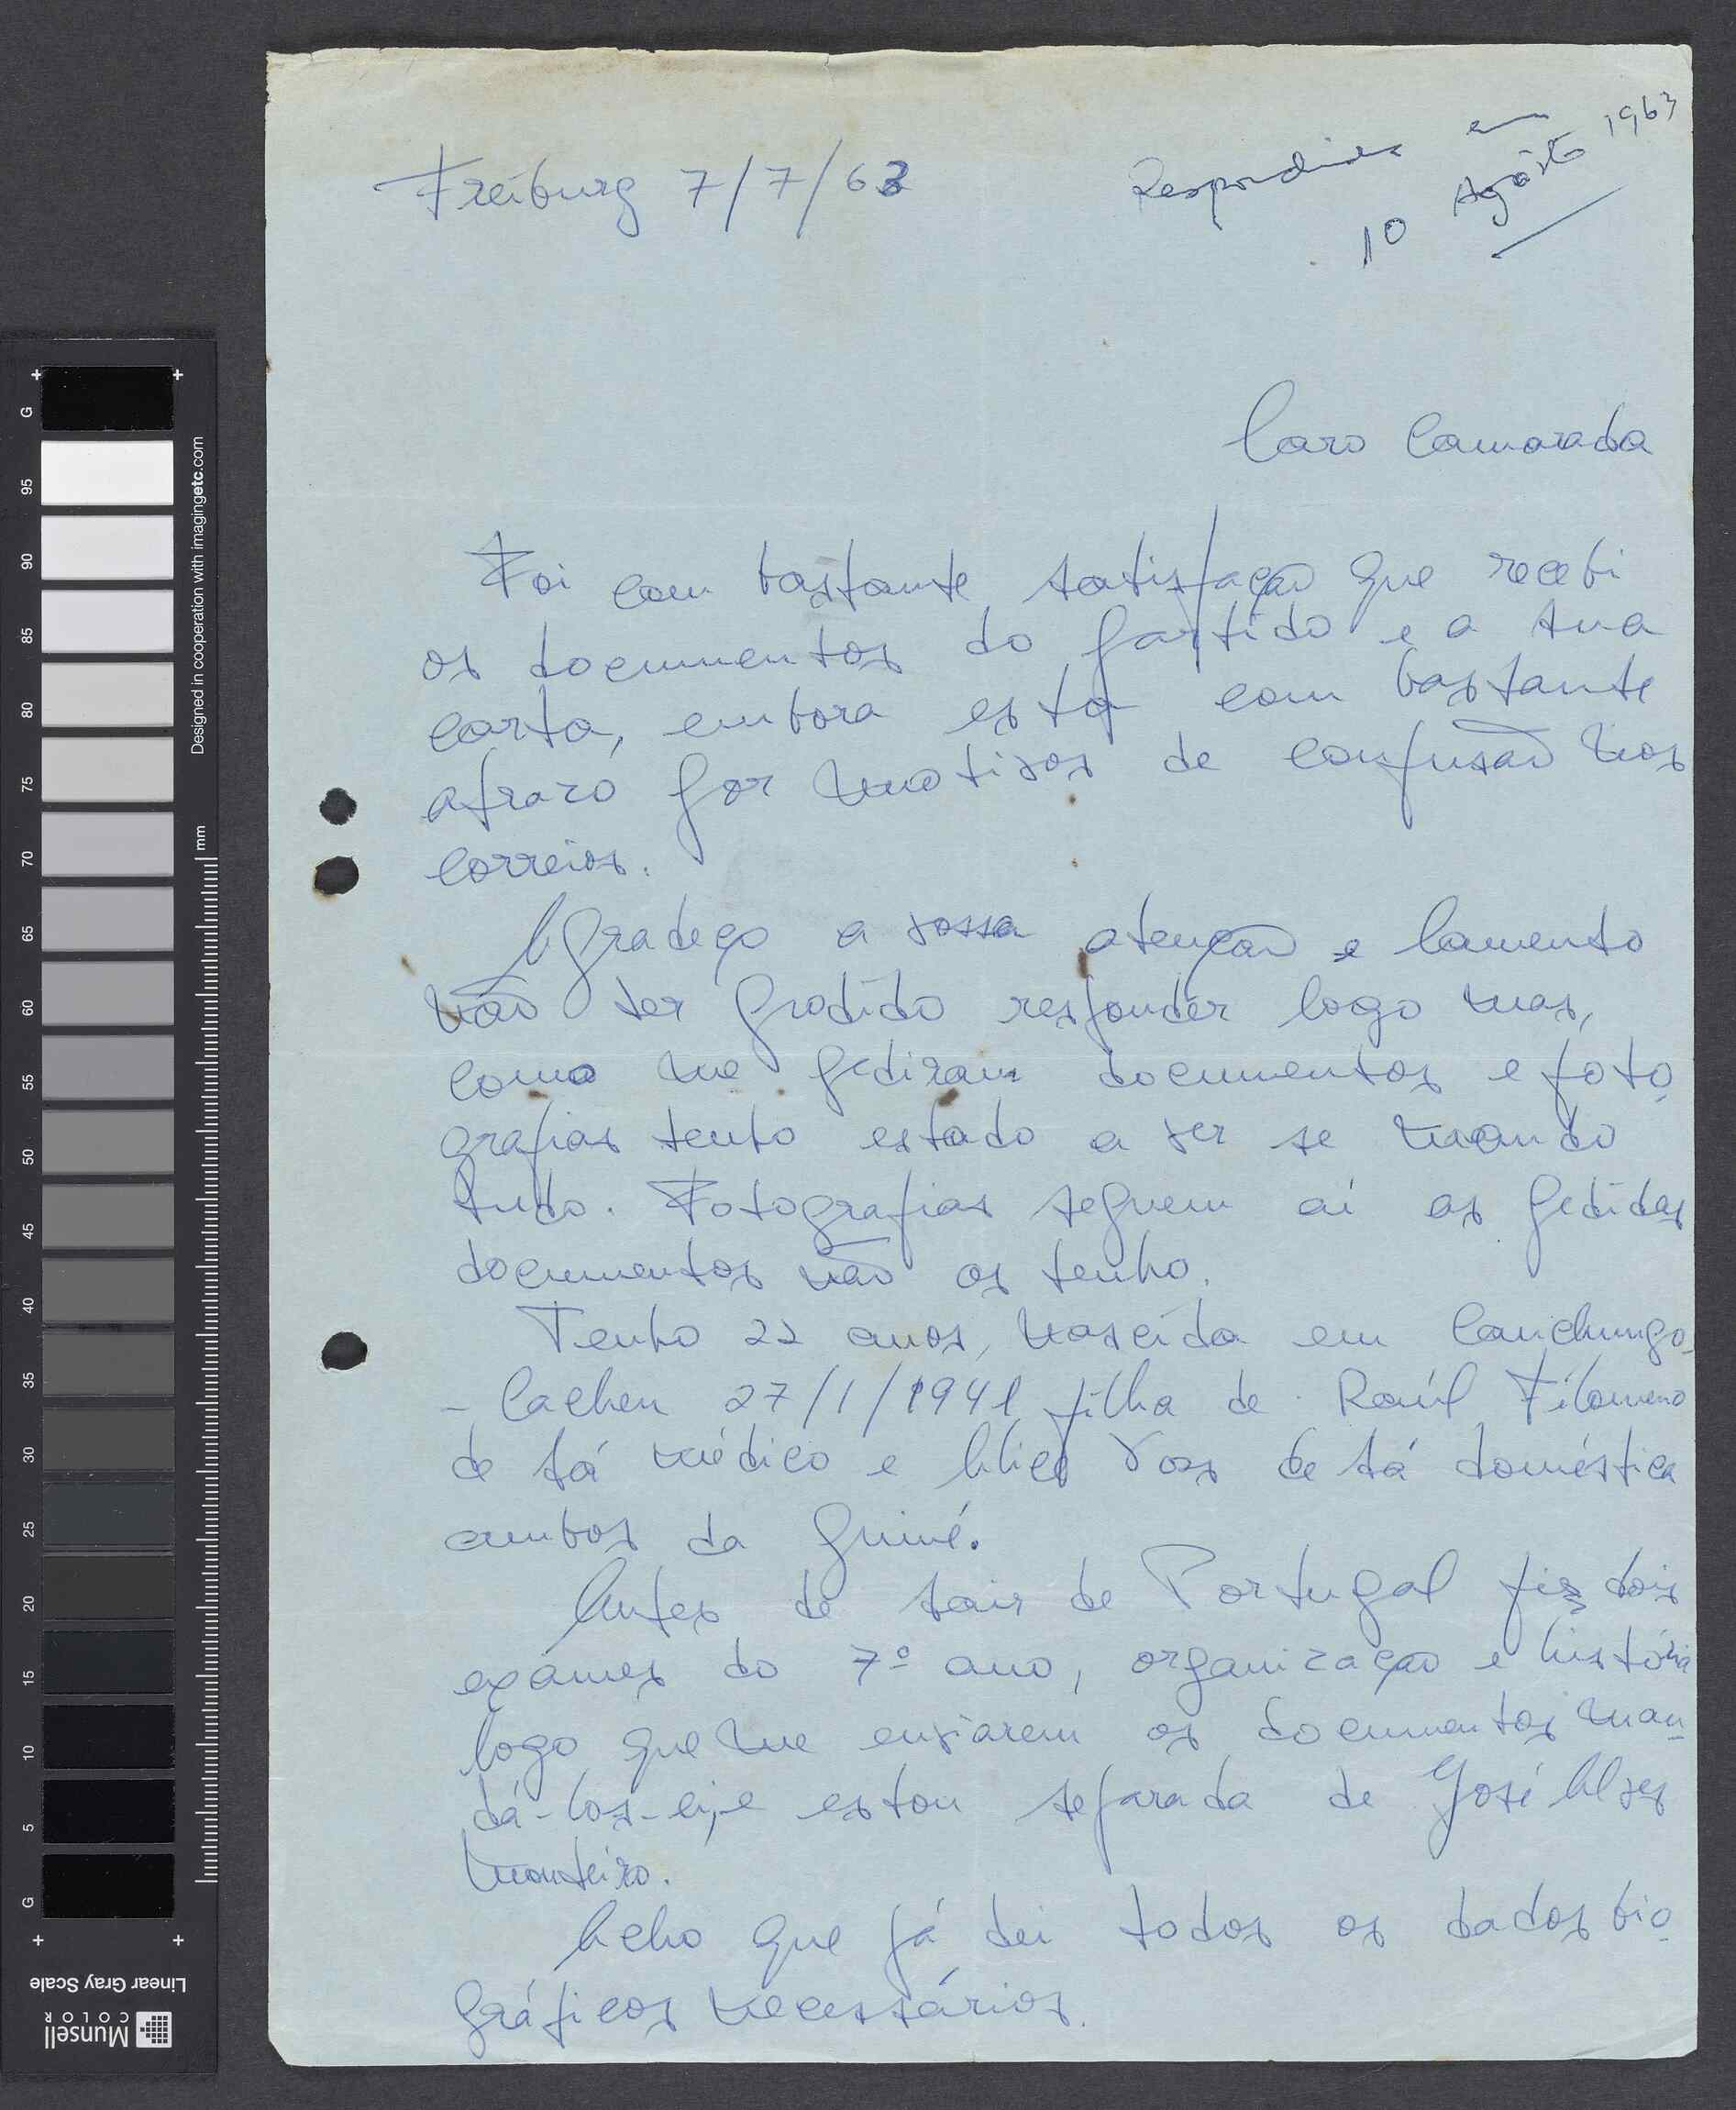 Freiburg 7/7/63
Respondida em
10 Agôsto 1963
Caro Camarada
Foi com bastante satisfação que recebi
os documentos do partido e a sua
carta, embora esta com bastante
atrazo por motivos de confusão nos
correios.
Agradeço a vossa atenção e lamento
não ter podido responder logo mas,
como me pediram documentos e foto
grafias tenho estado a ver se mando
tudo. Fotografias seguem aí as pedidas
documentos não os tenho.
Tenho 22 anos, nascida em Canchungo
- Cacheu 27/1/1941 filha de Raúl Filomeno
de Sá médico e Alice Vaz de Sá doméstica
ambos da Guiné.
Antes de sair de Portugal fiz dois
exâmes do 7º ano, organização e história
logo que me enviarem os documentos man
dá-los-ei, e estou separada de José Alves
Monteiro.
Acho que já dei todos os dados bio
gráficos necessários.
G 95 90 85 80 75 70 65 60 55 50 45 40 35 30 25 20 15 10 5 G
mm
Designed in cooperation with imagingetc.com
Munsell
COLOR
Linear Gray Scale